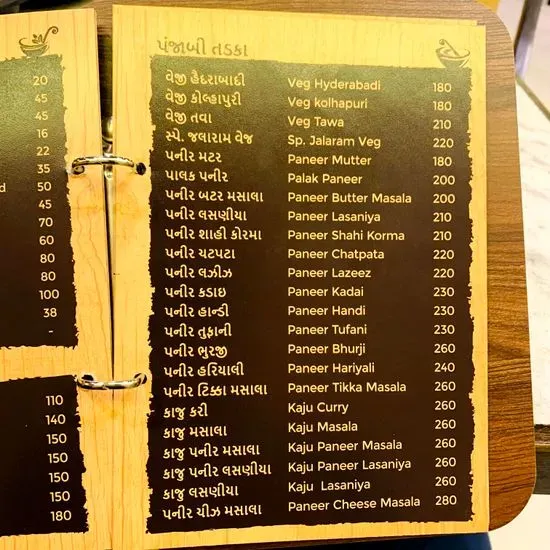 20
45
45
16
22
35
d 50
45
70
60
80
80
100
38
-
110
140
150
150
150
150
180
પંજાબી તડકા
વેજી હૈદરાબાદી Veg Hyderabadi 180
વેજી કોલ્હાપુરી Veg kolhapuri 180
વેજી તવા Veg Tawa 210
સ્પે. જલારામ વેજ Sp. Jalaram Veg 220
પનીર મટર Paneer Mutter 180
પાલક પનીર Palak Paneer 200
પનીર બટર મસાલા Paneer Butter Masala 200
પનીર લસણીયા Paneer Lasaniya 210
પનીર શાહી કોરમા Paneer Shahi Korma 210
પનીર ચટપટા Paneer Chatpata 220
પનીર લઝીઝ Paneer Lazeez 220
પનીર કડાઇ Paneer Kadai 230
પનીર હાન્ડી Paneer Handi 230
પનીર તુફાની Paneer Tufani 230
પનીર ભુરજી Paneer Bhurji 260
પનીર હરિયાલી Paneer Hariyali 240
પનીર ટિક્કા મસાલા Paneer Tikka Masala 260
કાજુ કરી Kaju Curry 260
કાજુ મસાલા Kaju Masala 260
કાજુ પનીર મસાલા Kaju Paneer Masala 260
કાજુ પનીર લસણીયા Kaju Paneer Lasaniya 260
કાજુ લસણીયા Kaju Lasaniya 260
પનીર ચીઝ મસાલા Paneer Cheese Masala 280